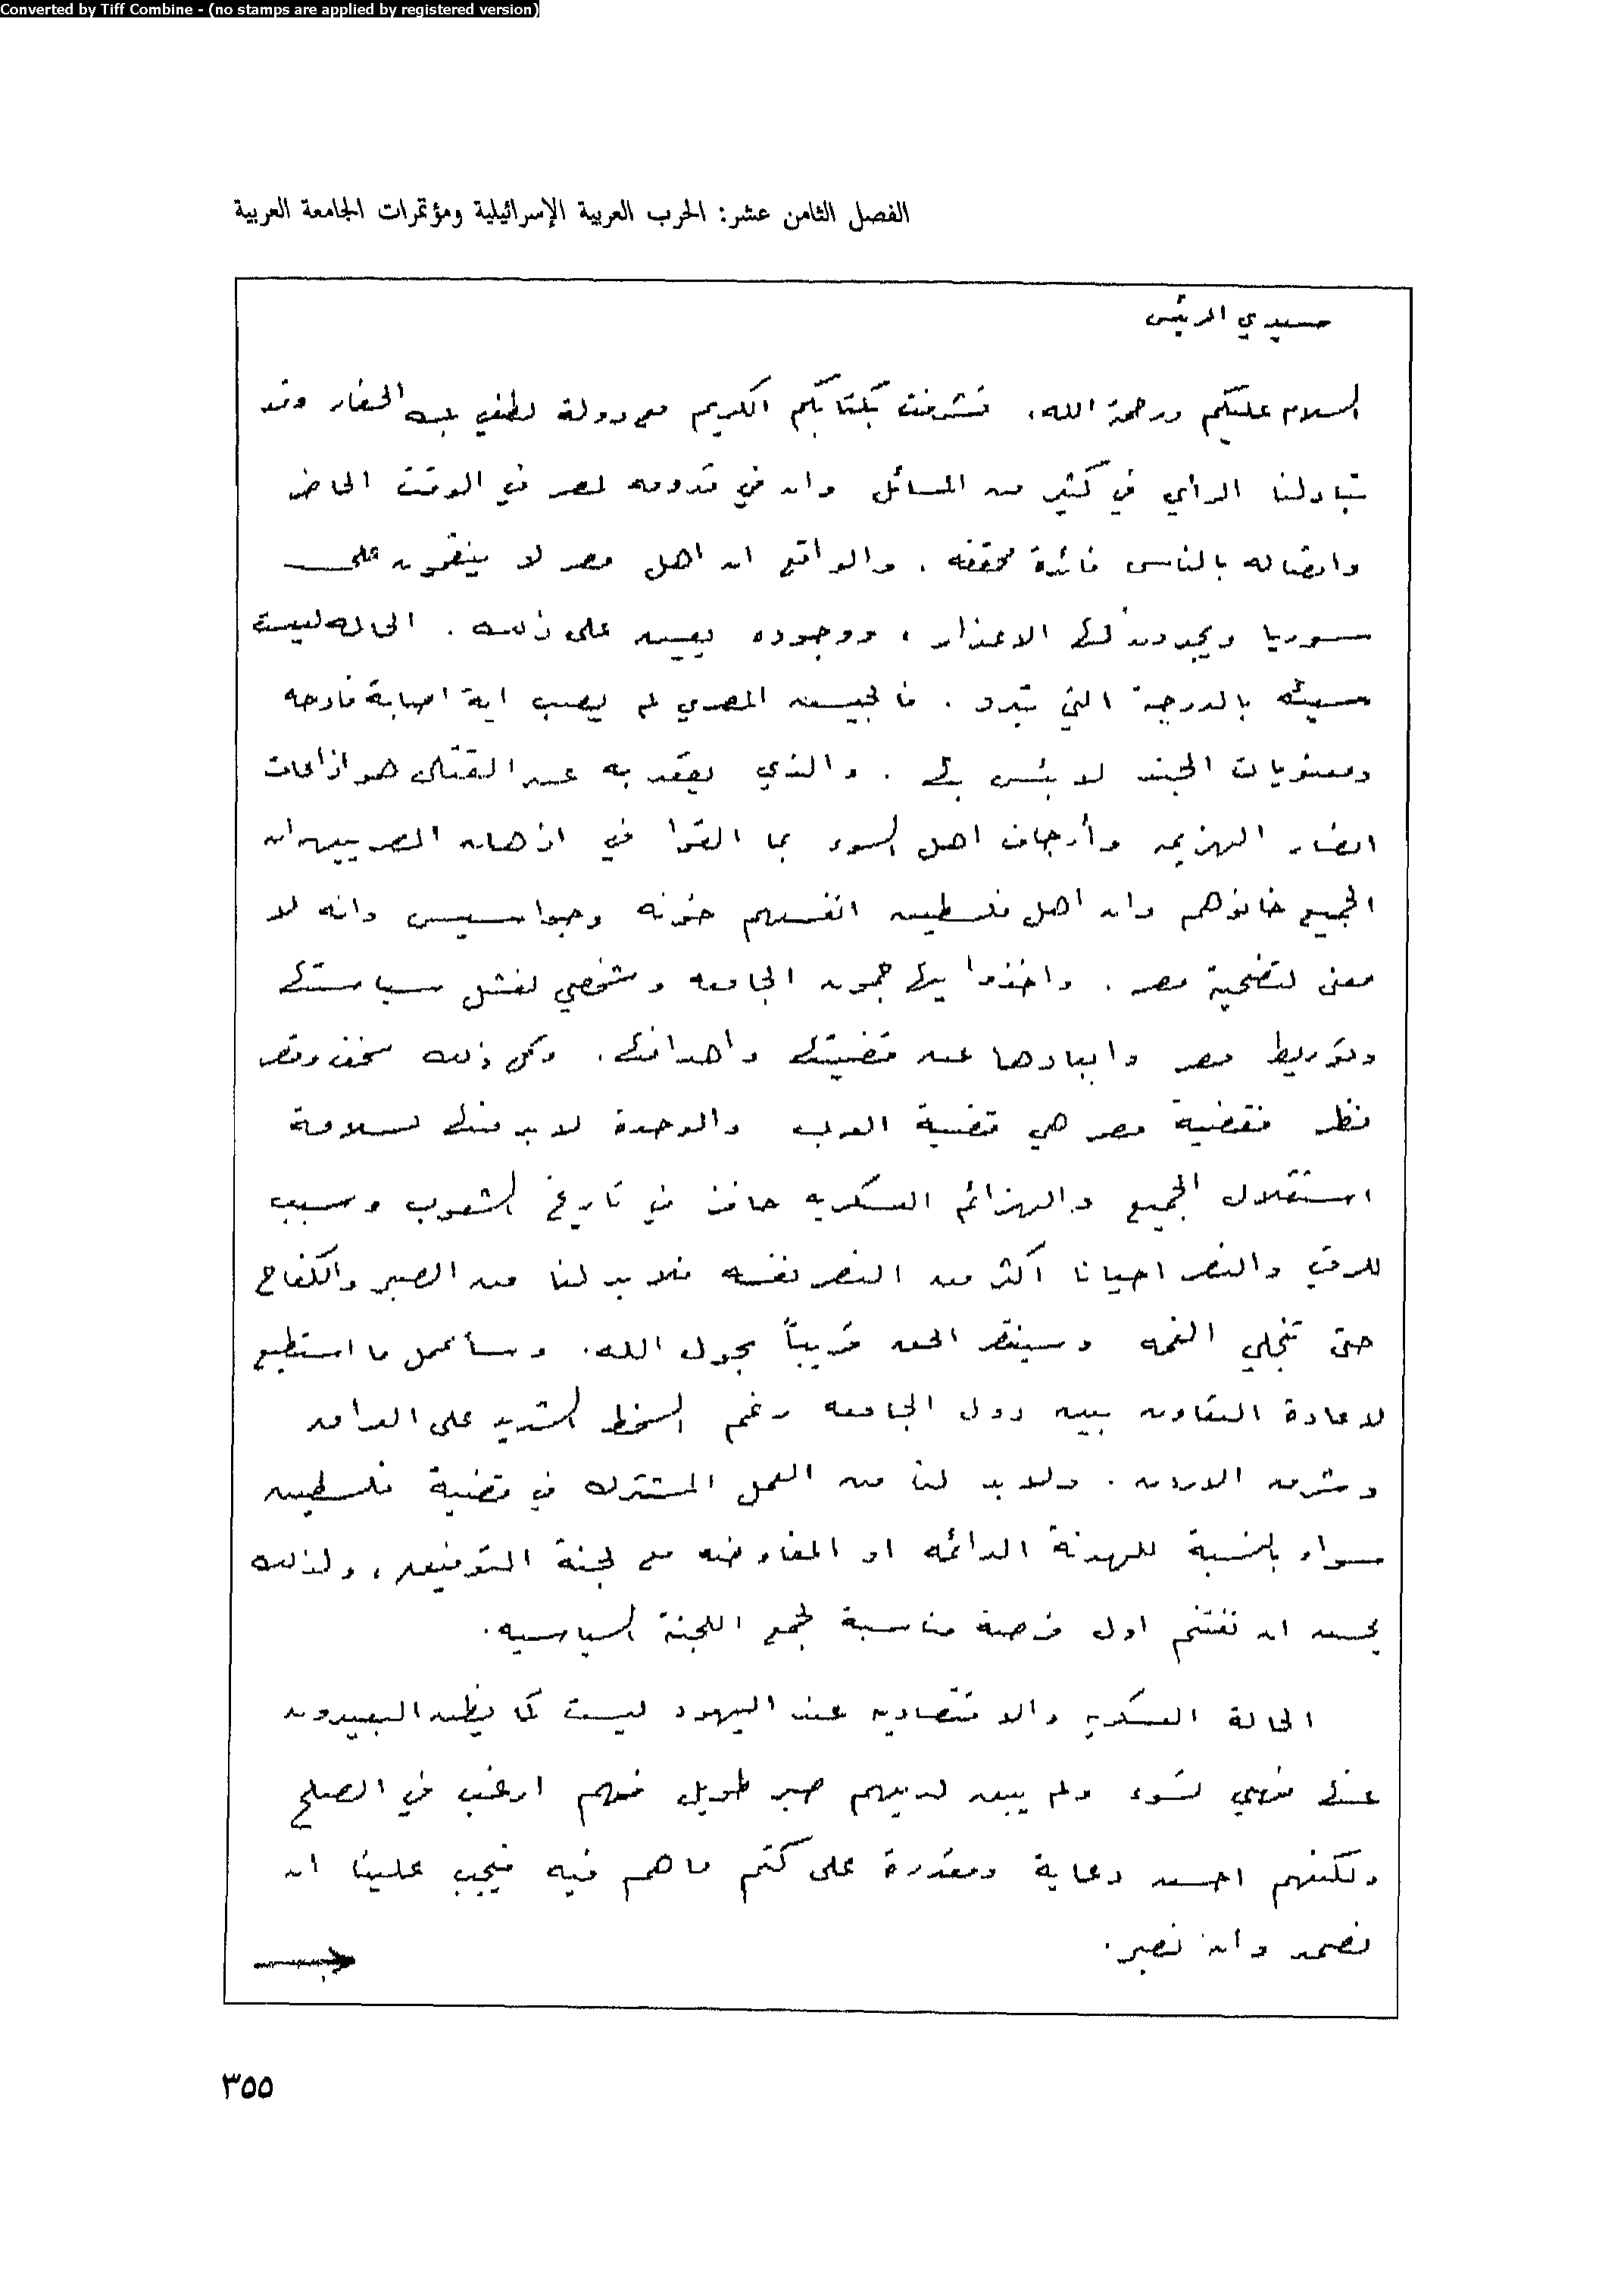 Converted by Tiff Combine - (no stamps are applied by registered version)
الفصل الثامن عشر: الحرب العربية الإسرائيلية ومؤتمرات الجامعة العربية
سيدي الرئيس
السلام عليكم ورحمة الله، تشرفت بكتابكم الكريم مع دولة لطفي بك الحفار وقد
تبادلنا الرأي في كثير من المسائل وان في قدومه لمصر في الوقت الحاضر
واتصاله بالناس فائدة محققه. والواقع ان اهل مصر لا ينقمون على
سوريا ويجدون لها الاعذار، ووجوده يعين على ذلك. الحاله ليست
سيئه بالدرجة التي تبدو. فالجيش المصري لم يصب اية اصابة فادحه
ومعنويات الجند لا بئس بها. والذي يقعد به عن القتال هو اذاعات
انصار الهزيمه وأرجاف اهل السوء بما القوا في اذهان المصريين ان
الجميع خانوهم وان اهل فلسطين انفسهم خونه وجواسيس وانه لا
معنى لتضحية مصر. واخذوا يهاجمون الجامعه وشخصي لفشل سياستها
وتوريط مصر وابعادها عن قضيتها واهدافها. وكل ذلك سخف وقصر
نظر فقضية مصر هي قضية العرب والوحدة لا بد منها لسلامة
استقلال الجميع والهزائم العسكريه حافز في تاريخ الشعوب وسبب
للرقي والنصر احيانا اكثر من النصر نفسه فلا بد لنا من الصبر والكفاح
حتى تنجلي الغمه وسينتصر الحق قريباً بحول الله. وسأعمل ما استطيع
لاعادة التعاون بين دول الجامعه رغم السخط الشديد على العراق
وشرق الاردن. ولا بد لنا من العمل المشترك في قضية فلسطين
سواء بالنسبة للهدنة الدائمه او المفاوضه مع لجنة التوفيق، ولذلك
يحسن ان نغتنم اول فرصة مناسبة لجمع اللجنة السياسيه.
الحالة العسكريه والاقتصاديه عند اليهود ليست كما يظن البعيدون
عنها فهي تسوء ولم يبق لديهم صبر طويل فهم ارغب في الصلح
ولكنهم احسن دعاية ومقدرة على كتم ما هم فيه فيجب علينا ان
نصمد وان نصبر.
٣٥٥